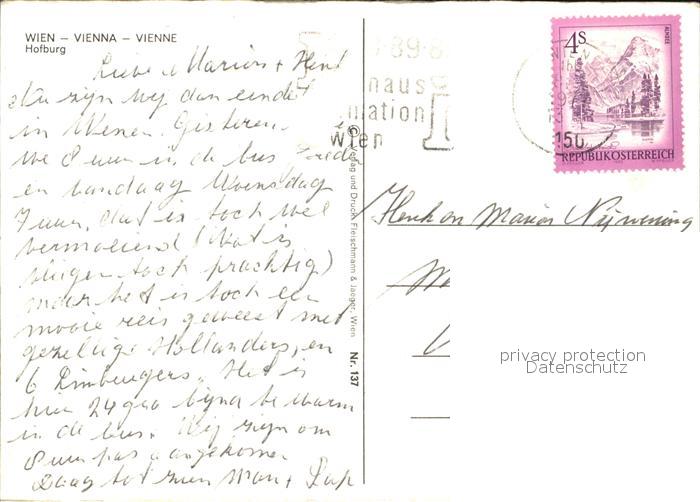 WIEN – VIENNA – VIENNE
Hofburg
Lieve Marion + Henk
zijn wij dan eindel
in Wenen. Gisteren
8 uur in de bus
en vandaag Woensdag
7 uur, dat is toch wel
vermoeiend! (Wat is
toch prachtig)
maar het is toch een
mooie reis geweest met
gezellige Hollanders, en
6 Limburgers. Het is
hier 24 gra bijna te warm
in de bus. Wij zijn om
8 uur pas aangekomen
Daag tot ziens Mam + Pap
Henk en Marion Nijwening
89-8
haus
mation
wien
150
4 S
ALMSEE
REPUBLIK ÖSTERREICH
© Verlag und Druck: Fleischmann & Jaeger, Wien
Nr. 137
privacy protection
Datenschutz